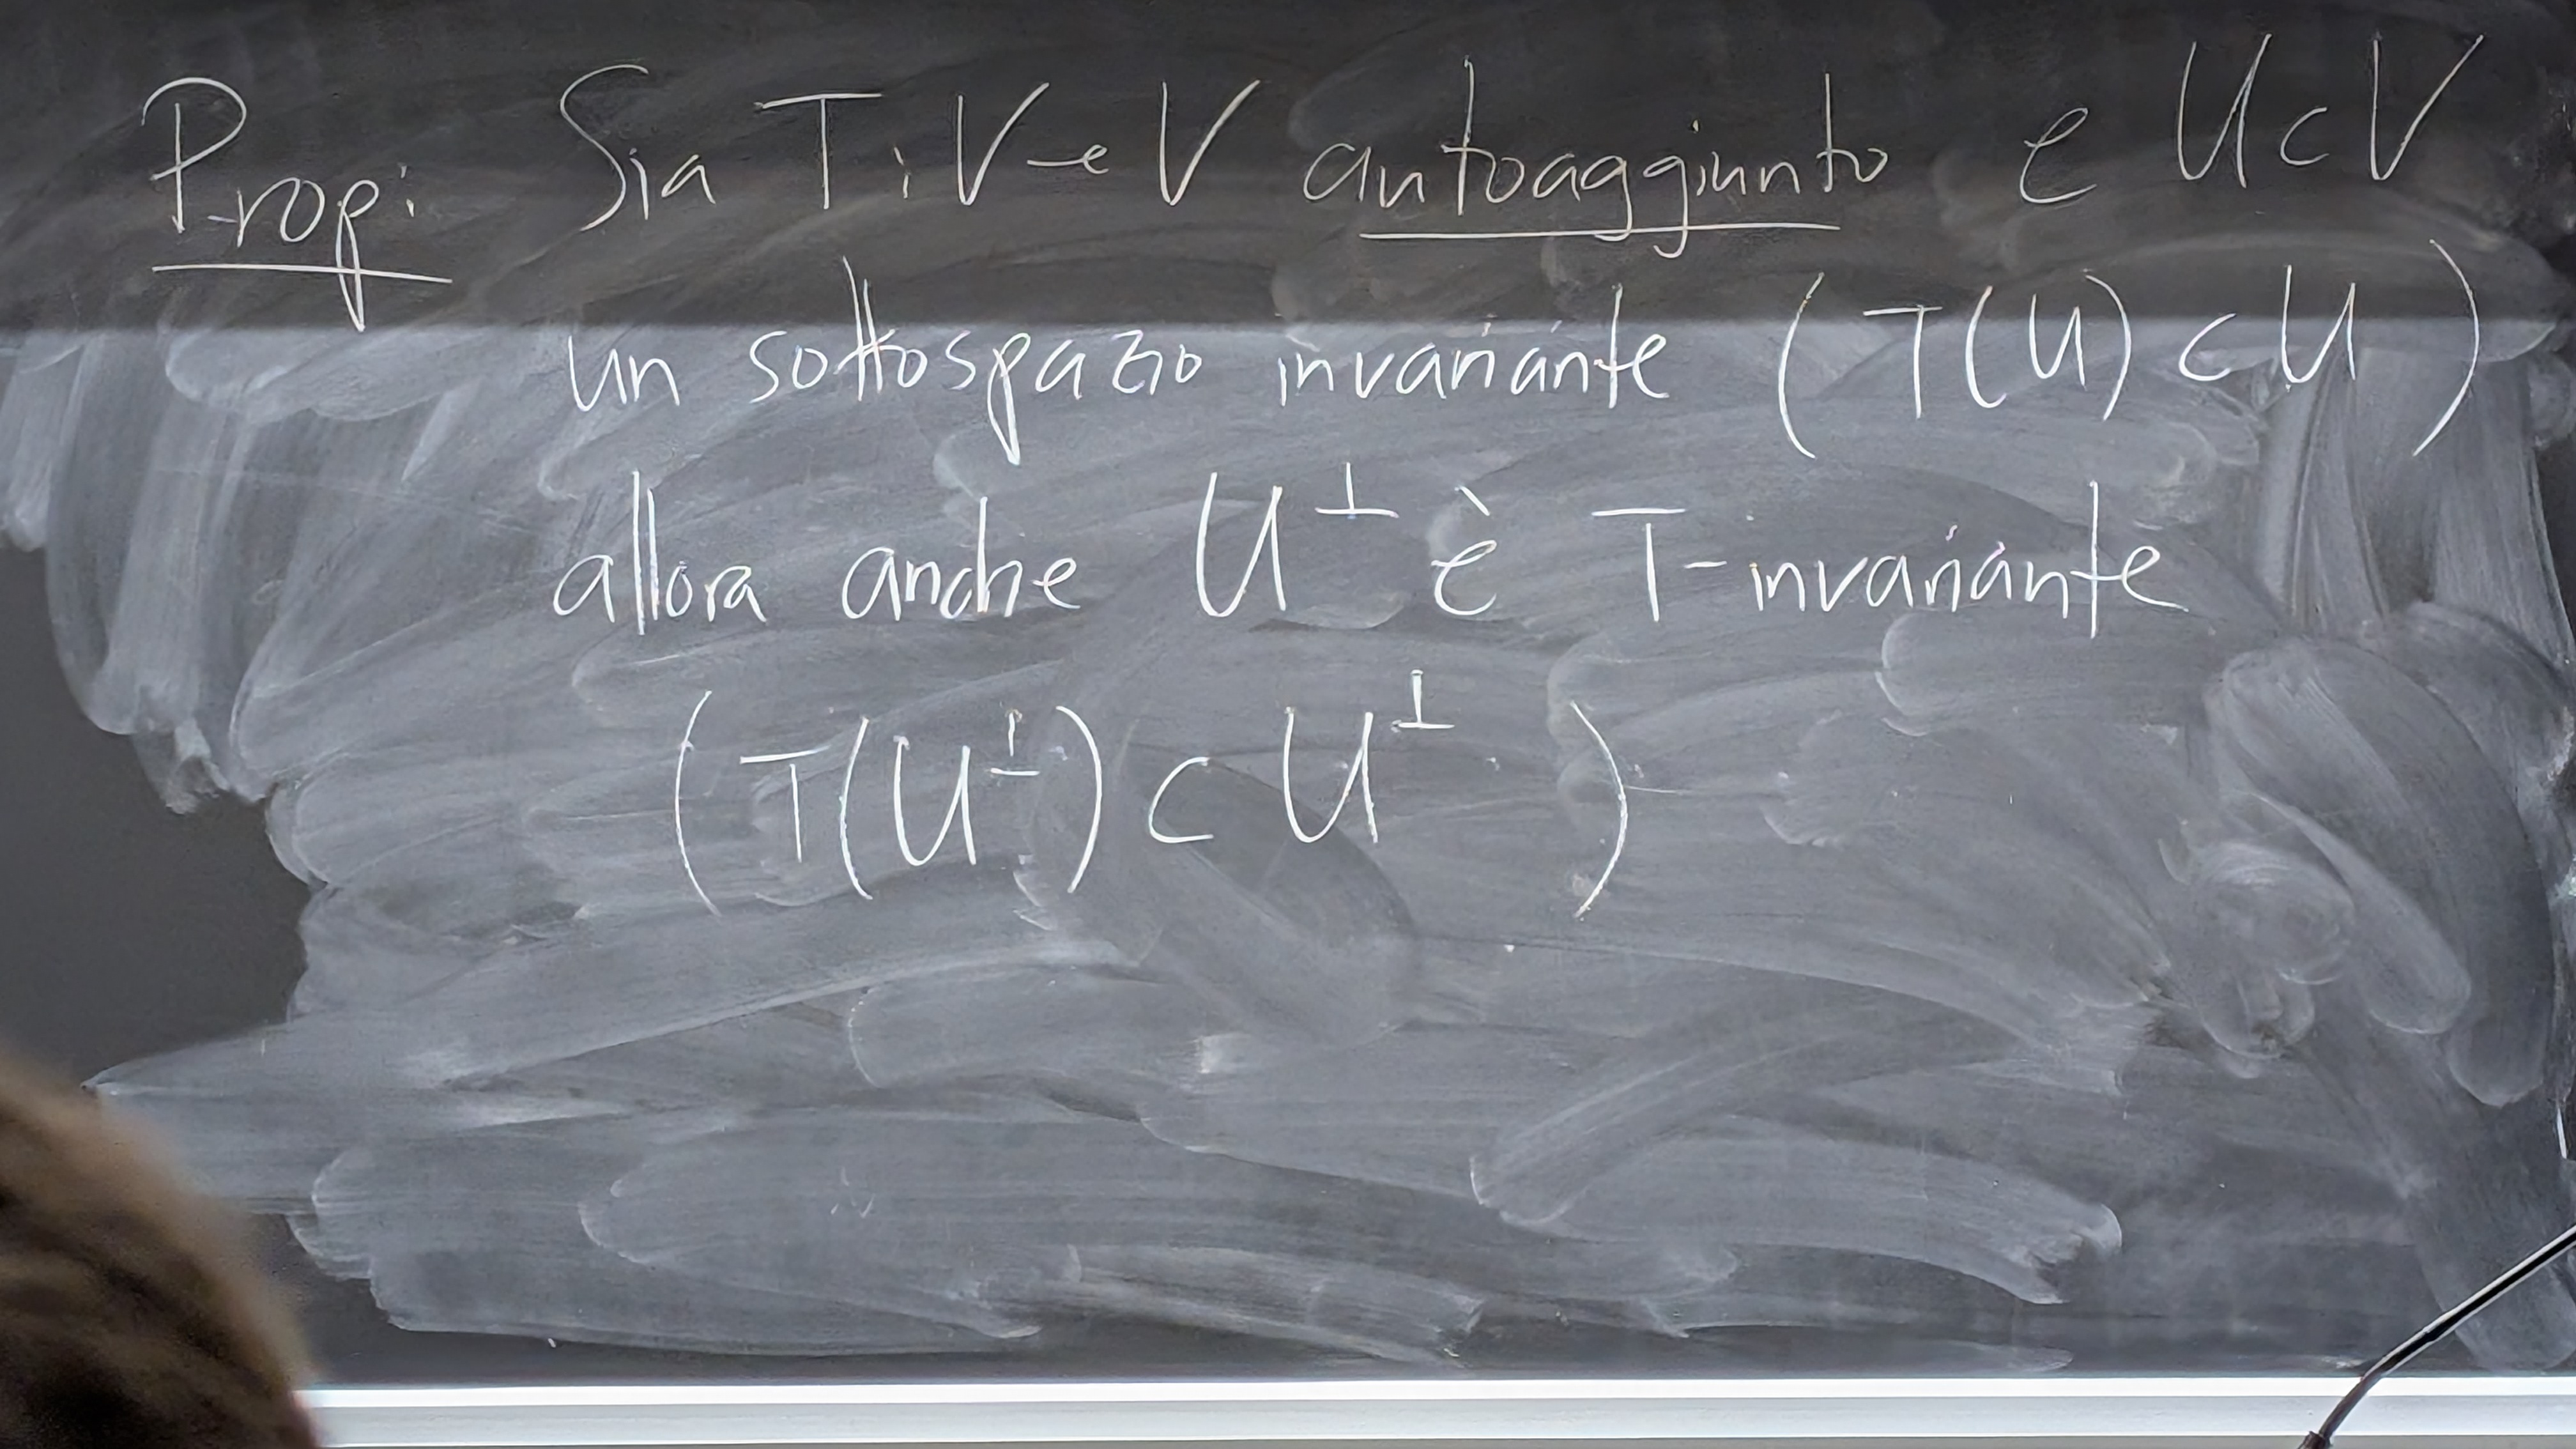 Prop: Sia T: V → V autoaggiunto e U ⊂ V
un sottospazio invariante (T(U) ⊂ U)
allora anche U^⊥ è T-invariante
(T(U^⊥) ⊂ U^⊥)